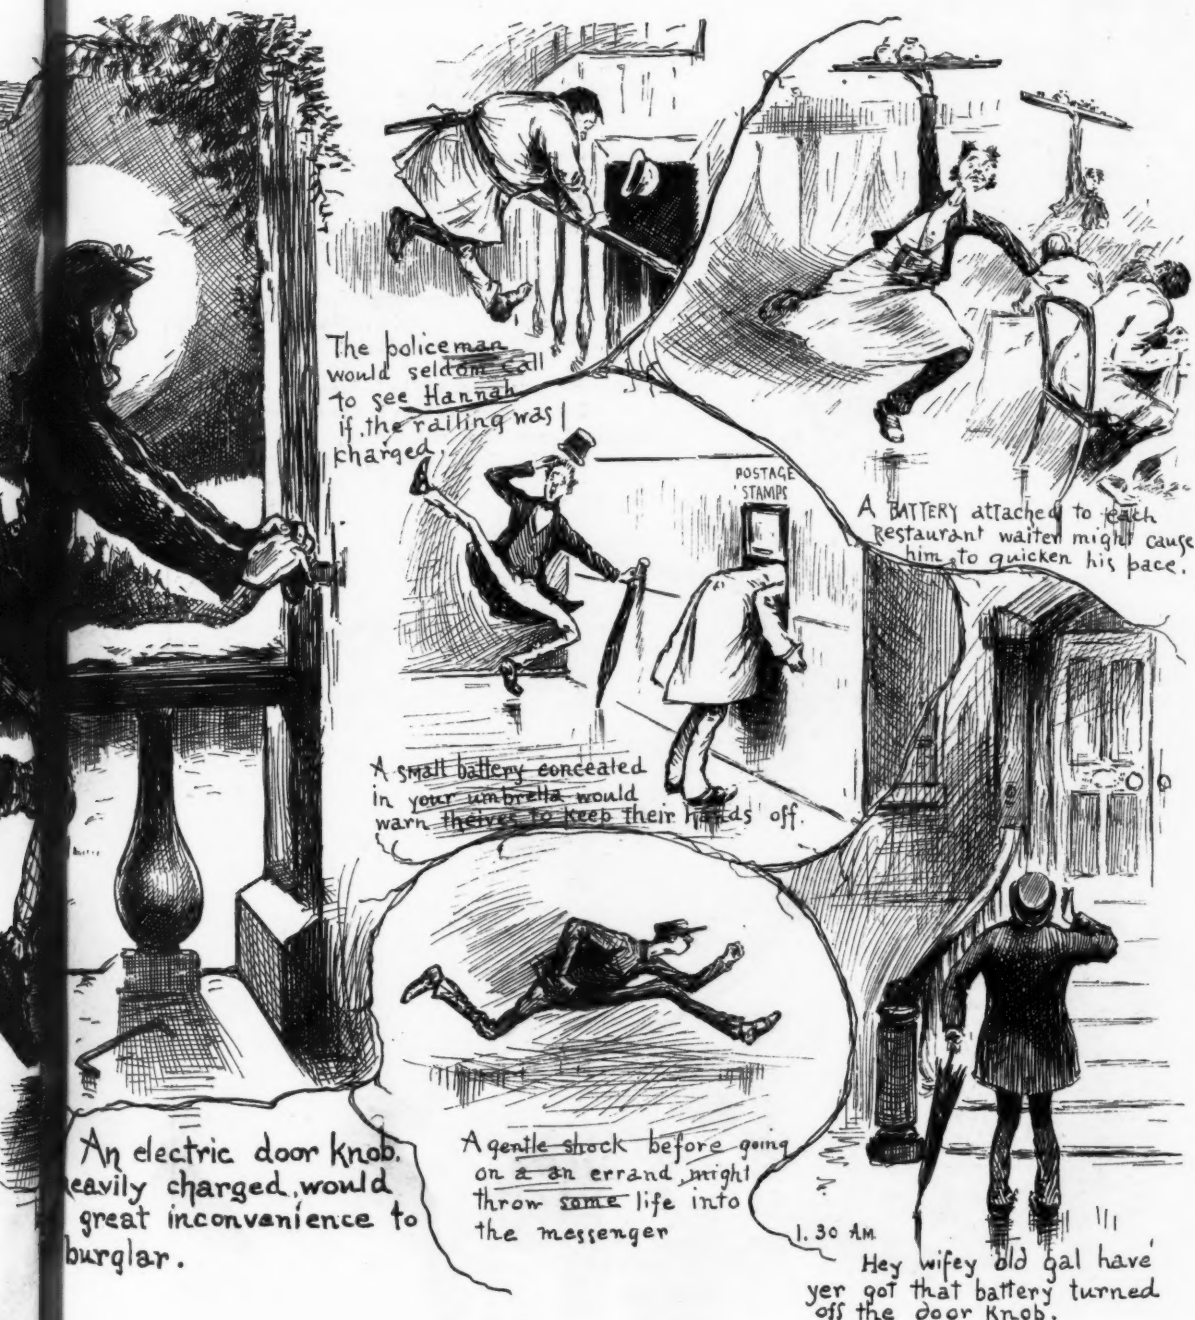 The policeman
would seldom call
to see Hannah
if the railing was
charged.
POSTAGE
STAMPS
A BATTERY attached to each
Restaurant waiter might cause
him to quicken his pace.
A small battery concealed
in your umbrella would
warn theives to keep their hands off.
An electric door knob.
eavily charged, would
great inconvenience to
burglar.
A gentle shock before going
on a an errand, might
throw some life into
the messenger
1.30 AM
Hey wifey old gal have
yer got that battery turned
off the door knob.